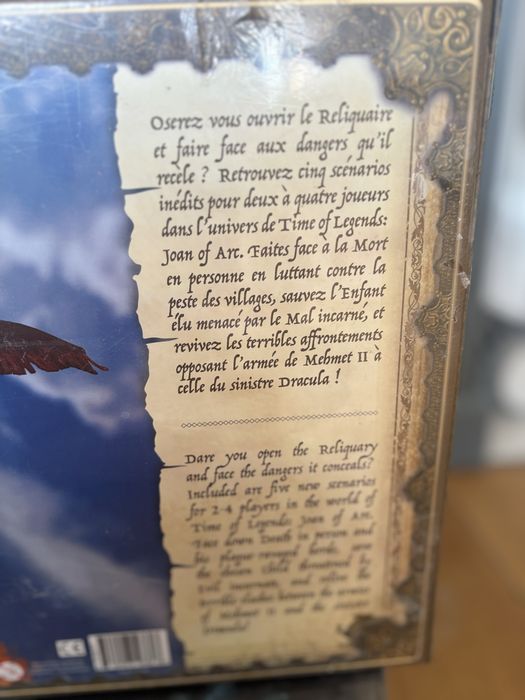 Oserez vous ouvrir le Reliquaire
et faire face aux dangers qu'il
recèle ? Retrouvez cinq scénarios
inédits pour deux à quatre joueurs
dans l'univers de Time of Legends:
Joan of Arc. Faites face à la Mort
en personne en luttant contre la
peste des villages, sauvez l'Enfant
élu menacé par le Mal incarné, et
revivez les terribles affrontements
opposant l'armée de Mehmet II à
celle du sinistre Dracula !
Dare you open the Reliquary
and face the dangers it conceals?
Included are five new scenarios
for 2-4 players in the world of
Time of Legends: Joan of Arc.
Face down Death in person and
his plague-ravaged horde, save
the chosen Child threatened by
Evil incarnate, and relive the
terrible clashes between the armies
of Mehmet II and the sinister
Dracula!
CE